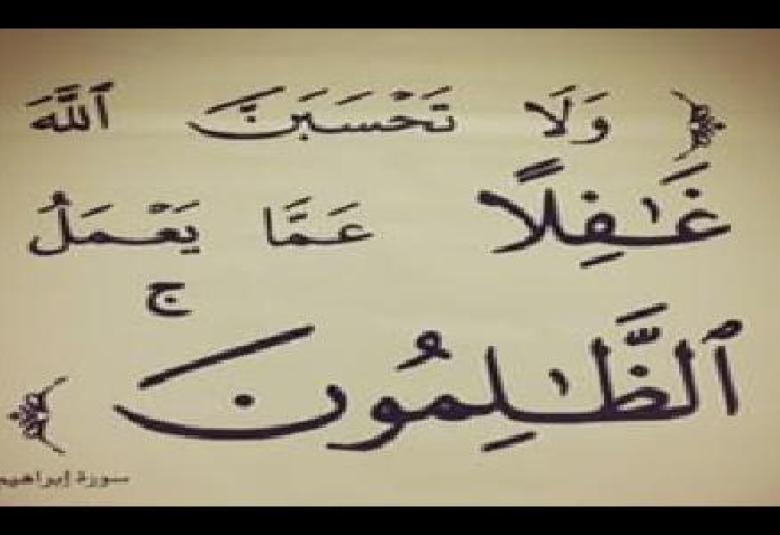 ﴿ وَلَا تَحْسَبَنَّ ٱللَّهَ
غَٰفِلًا عَمَّا يَعْمَلُ
ٱلظَّٰلِمُونَ ۚ ﴾
سورة إبراهيم